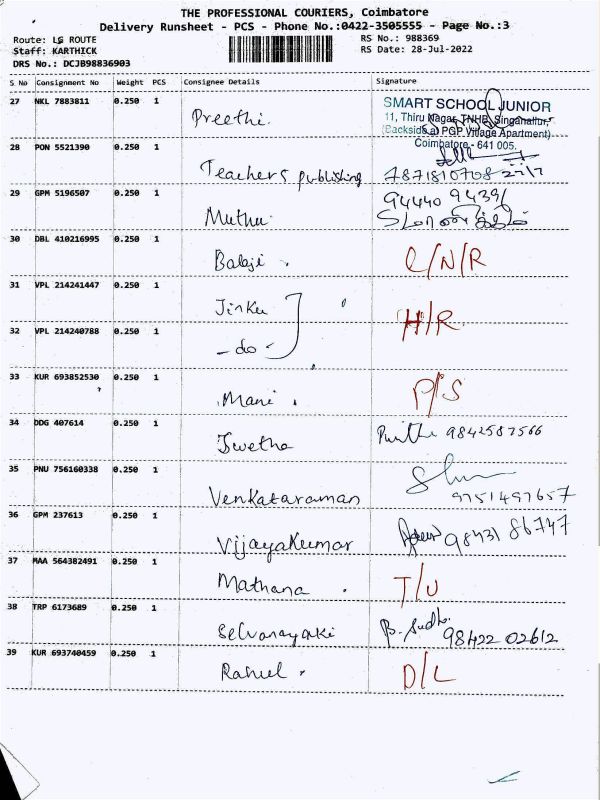 THE PROFESSIONAL COURIERS, Coimbatore
Delivery Runsheet - PCS - Phone No.:0422-3505555 - Page No.:3
Route: LG ROUTE
Staff: KARTHICK
DRS No.: DCJB98836903
RS No.: 988369
RS Date: 28-Jul-2022
S No Consignment No Weight PCS Consignee Details Signature
27 NKL 7883811 0.250 1 Preethi.
SMART SCHOOL JUNIOR
11, Thiru Nagar, TNHB, Singanallur,
(Backside of PGP Village Apartment)
Coimbatore - 641 005.
28 PON 5521390 0.250 1 Teachers publishing 7871810708
29 GPM 5196507 0.250 1 Muthu 94440 94391
30 DBL 410216995 0.250 1 Balaji . C/N/R
31 VPL 214241447 0.250 1 Jinku
H/R
32 VPL 214240788 0.250 1 - do -
33 KUR 693852530 0.250 1 Mani . P/S
34 DDG 407614 0.250 1 Swetha 9842587566
35 PNU 756160338 0.250 1 Venkataraman
9751497657
36 GPM 237613 0.250 1 Vijayakumar 98431 86747
37 MAA 564382491 0.250 1 Mathana . T/U
38 TRP 6173689 0.250 1 Selvanayaki B. Sudha
98422 02612
39 KUR 693740459 0.250 1 Rahul . D/L